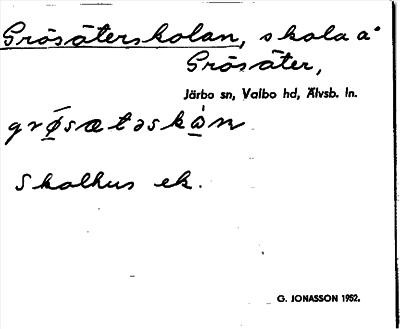 Grösäterskolan, skola å
Grösäter,
Järbo sn, Valbo hd, Älvsb. ln.
grø̀sætəskàn
Skolhus ek.
G. JONASSON 1952.